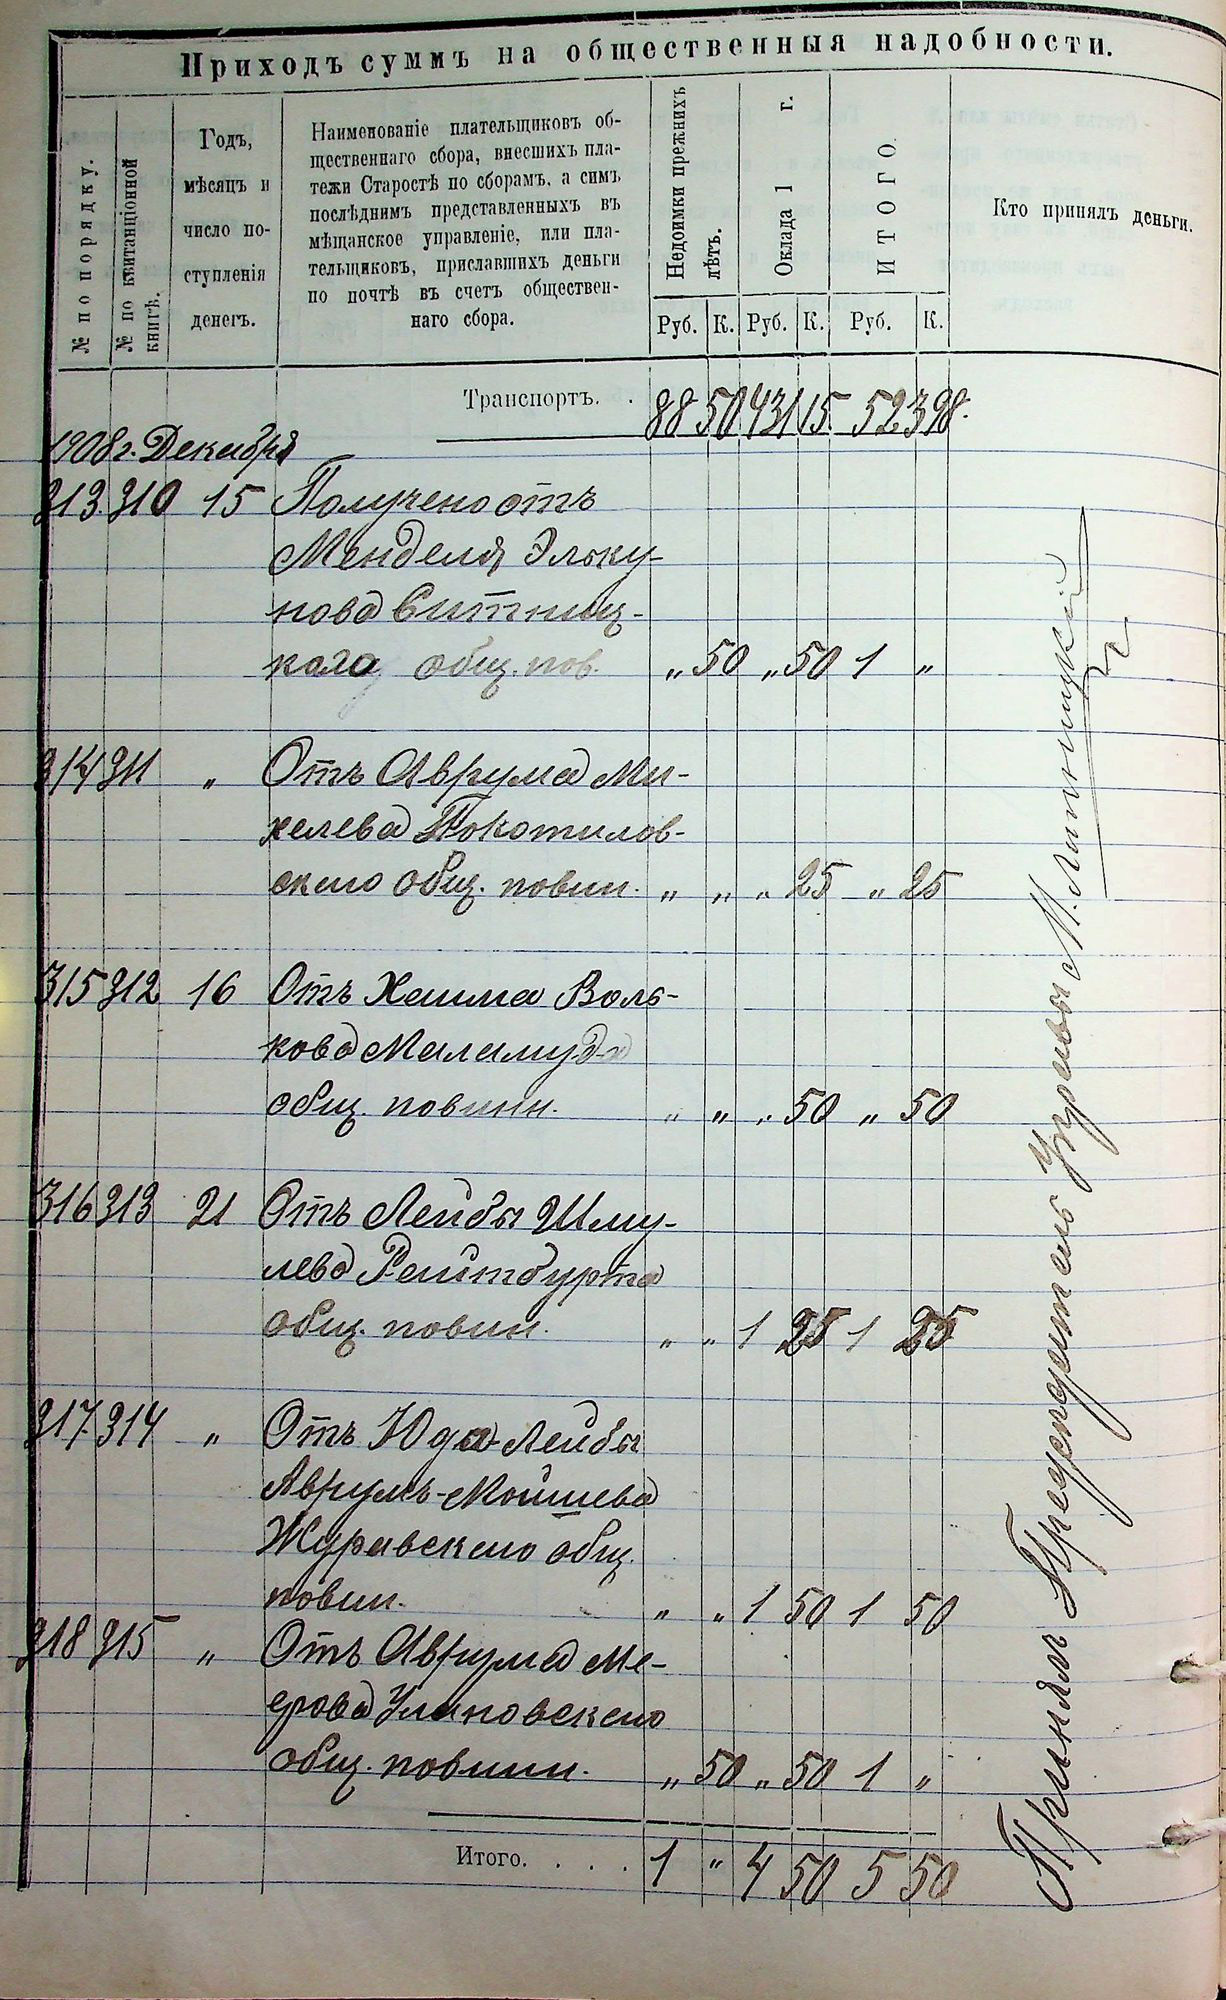 Приходъ суммъ на общественныя надобности.
№ по порядку.
№ по квитанціонной
книгѣ.
Годъ,
мѣсяцъ и
число по-
ступленія
денегъ.
Наименованіе плательщиковъ об-
щественнаго сбора, внесшихъ пла-
тежи Старостѣ по сборамъ, а симъ
послѣднимъ представленныхъ въ
мѣщанское управленіе, или пла-
тельщиковъ, приславшихъ деньги
по почтѣ въ счетъ обществен-
наго сбора.
Недоимки прежнихъ
лѣтъ.
Оклада 1 г.
ИТОГО.
Кто принялъ деньги.
Руб. К. Руб. К. Руб. К.
Транспортъ. . 88 50 431 15 523 98.
1908 г. Декабря
313. 310 15 Получено отъ
Менделя Эльку-
нова Ситниц-
каго общ. пов. „ 50 „ 50 1 „
314 311 „ Отъ Аврума Ми-
хелева Покотилов-
скаго общ. повин. „ „ „ 25 „ 25
315 312 16 Отъ Хаима Воль-
кова Маламуда
общ. повинн. „ „ „ 50 „ 50
316 313 21 Отъ Лейбы Шму-
лева Рейтбурта
общ. повин. „ „ 1 25 1 25
317. 314 „ Отъ Юда-Лейбы
Аврумъ-Мошиева
Журавскаго общ.
повин. „ „ 1 50 1 50
318 315 „ Отъ Аврума Ме-
ерова Улановскаго
общ. повинн. „ 50 „ 50 1 „
Итого. . . . 1 „ 4 50 5 50
Принялъ Предсѣдатель Управы М. Липницкій